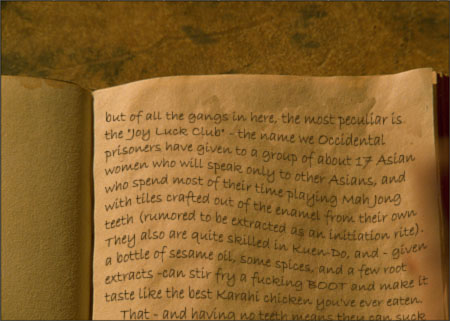 but of all the gangs in here, the most peculiar is
the "Joy Luck Club" - the name we Occidental
prisoners have given to a group of about 17 Asian
women who will speak only to other Asians, and
who spend most of their time playing Mah Jong
with tiles crafted out of the enamel from their own
teeth (rumored to be extracted as an initiation rite).
They also are quite skilled in Kuen-Do, and - given
a bottle of sesame oil, some spices, and a few root
extracts -can stir fry a fucking BOOT and make it
taste like the best Karahi chicken you've ever eaten.
That - and having no teeth means they can suck